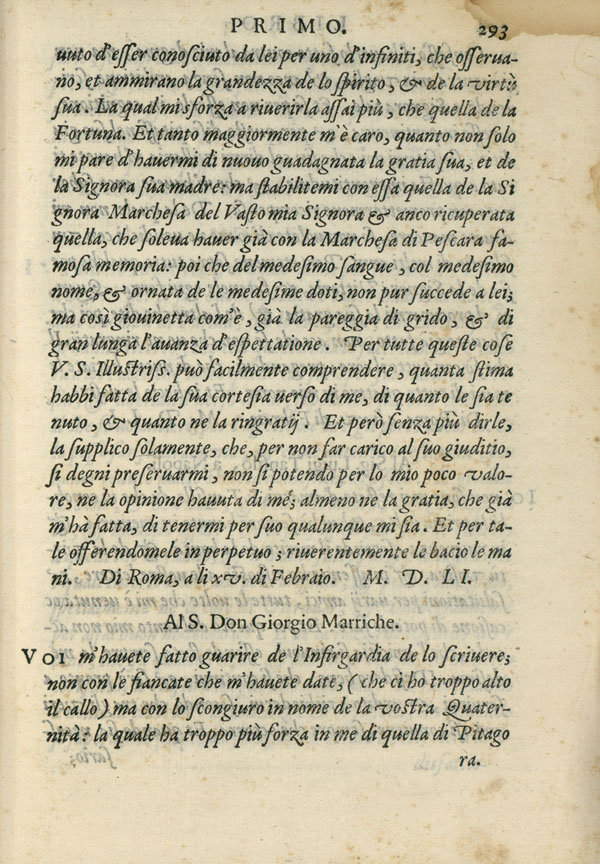 PRIMO. 293
uuto d'esser conosciuto da lei per uno d'infiniti, che osserua-
no, et ammirano la grandezza de lo spirito, & de la virtù
sua. La qual mi sforza a riuerirla assai più, che quella de la
Fortuna. Et tanto maggiormente m'è caro, quanto non solo
mi pare d'hauermi di nuouo guadagnata la gratia sua, et de
la Signora sua madre: ma stabilitemi con essa quella de la Si
gnora Marchesa del Vasto mia Signora & anco ricuperata
quella, che soleua hauer già con la Marchesa di Pescara fa-
mosa memoria: poi che del medesimo sangue, col medesimo
nome, & ornata de le medesime doti, non pur succede a lei;
ma così giouinetta com'è, già la pareggia di grido, & di
gran lunga l'auanza d'espettatione. Per tutte queste cose
V. S. Illustriss. può facilmente comprendere, quanta stima
habbi fatta de la sua cortesia uerso di me, di quanto le sia te
nuto, & quanto ne la ringratij. Et però senza più dirle,
la supplico solamente, che, per non far carico al suo giuditio,
si degni preseruarmi, non si potendo per lo mio poco valo-
re, ne la opinione hauuta di me; almeno ne la gratia, che già
m'hà fatta, di tenermi per suo qualunque mi sia. Et per ta-
le offerendomele in perpetuo; riuerentemente le bacio le ma
ni. Di Roma, a li xv. di Febraio. M. D. LI.
Al S. Don Giorgio Marriche.
VOI m'hauete fatto guarire de l'Infirgardia de lo scriuere;
non con le fiancate che m'hauete date, (che ci ho troppo alto
il callo) ma con lo scongiuro in nome de la vostra Quater-
nità: la quale ha troppo più forza in me di quella di Pitago
ra.